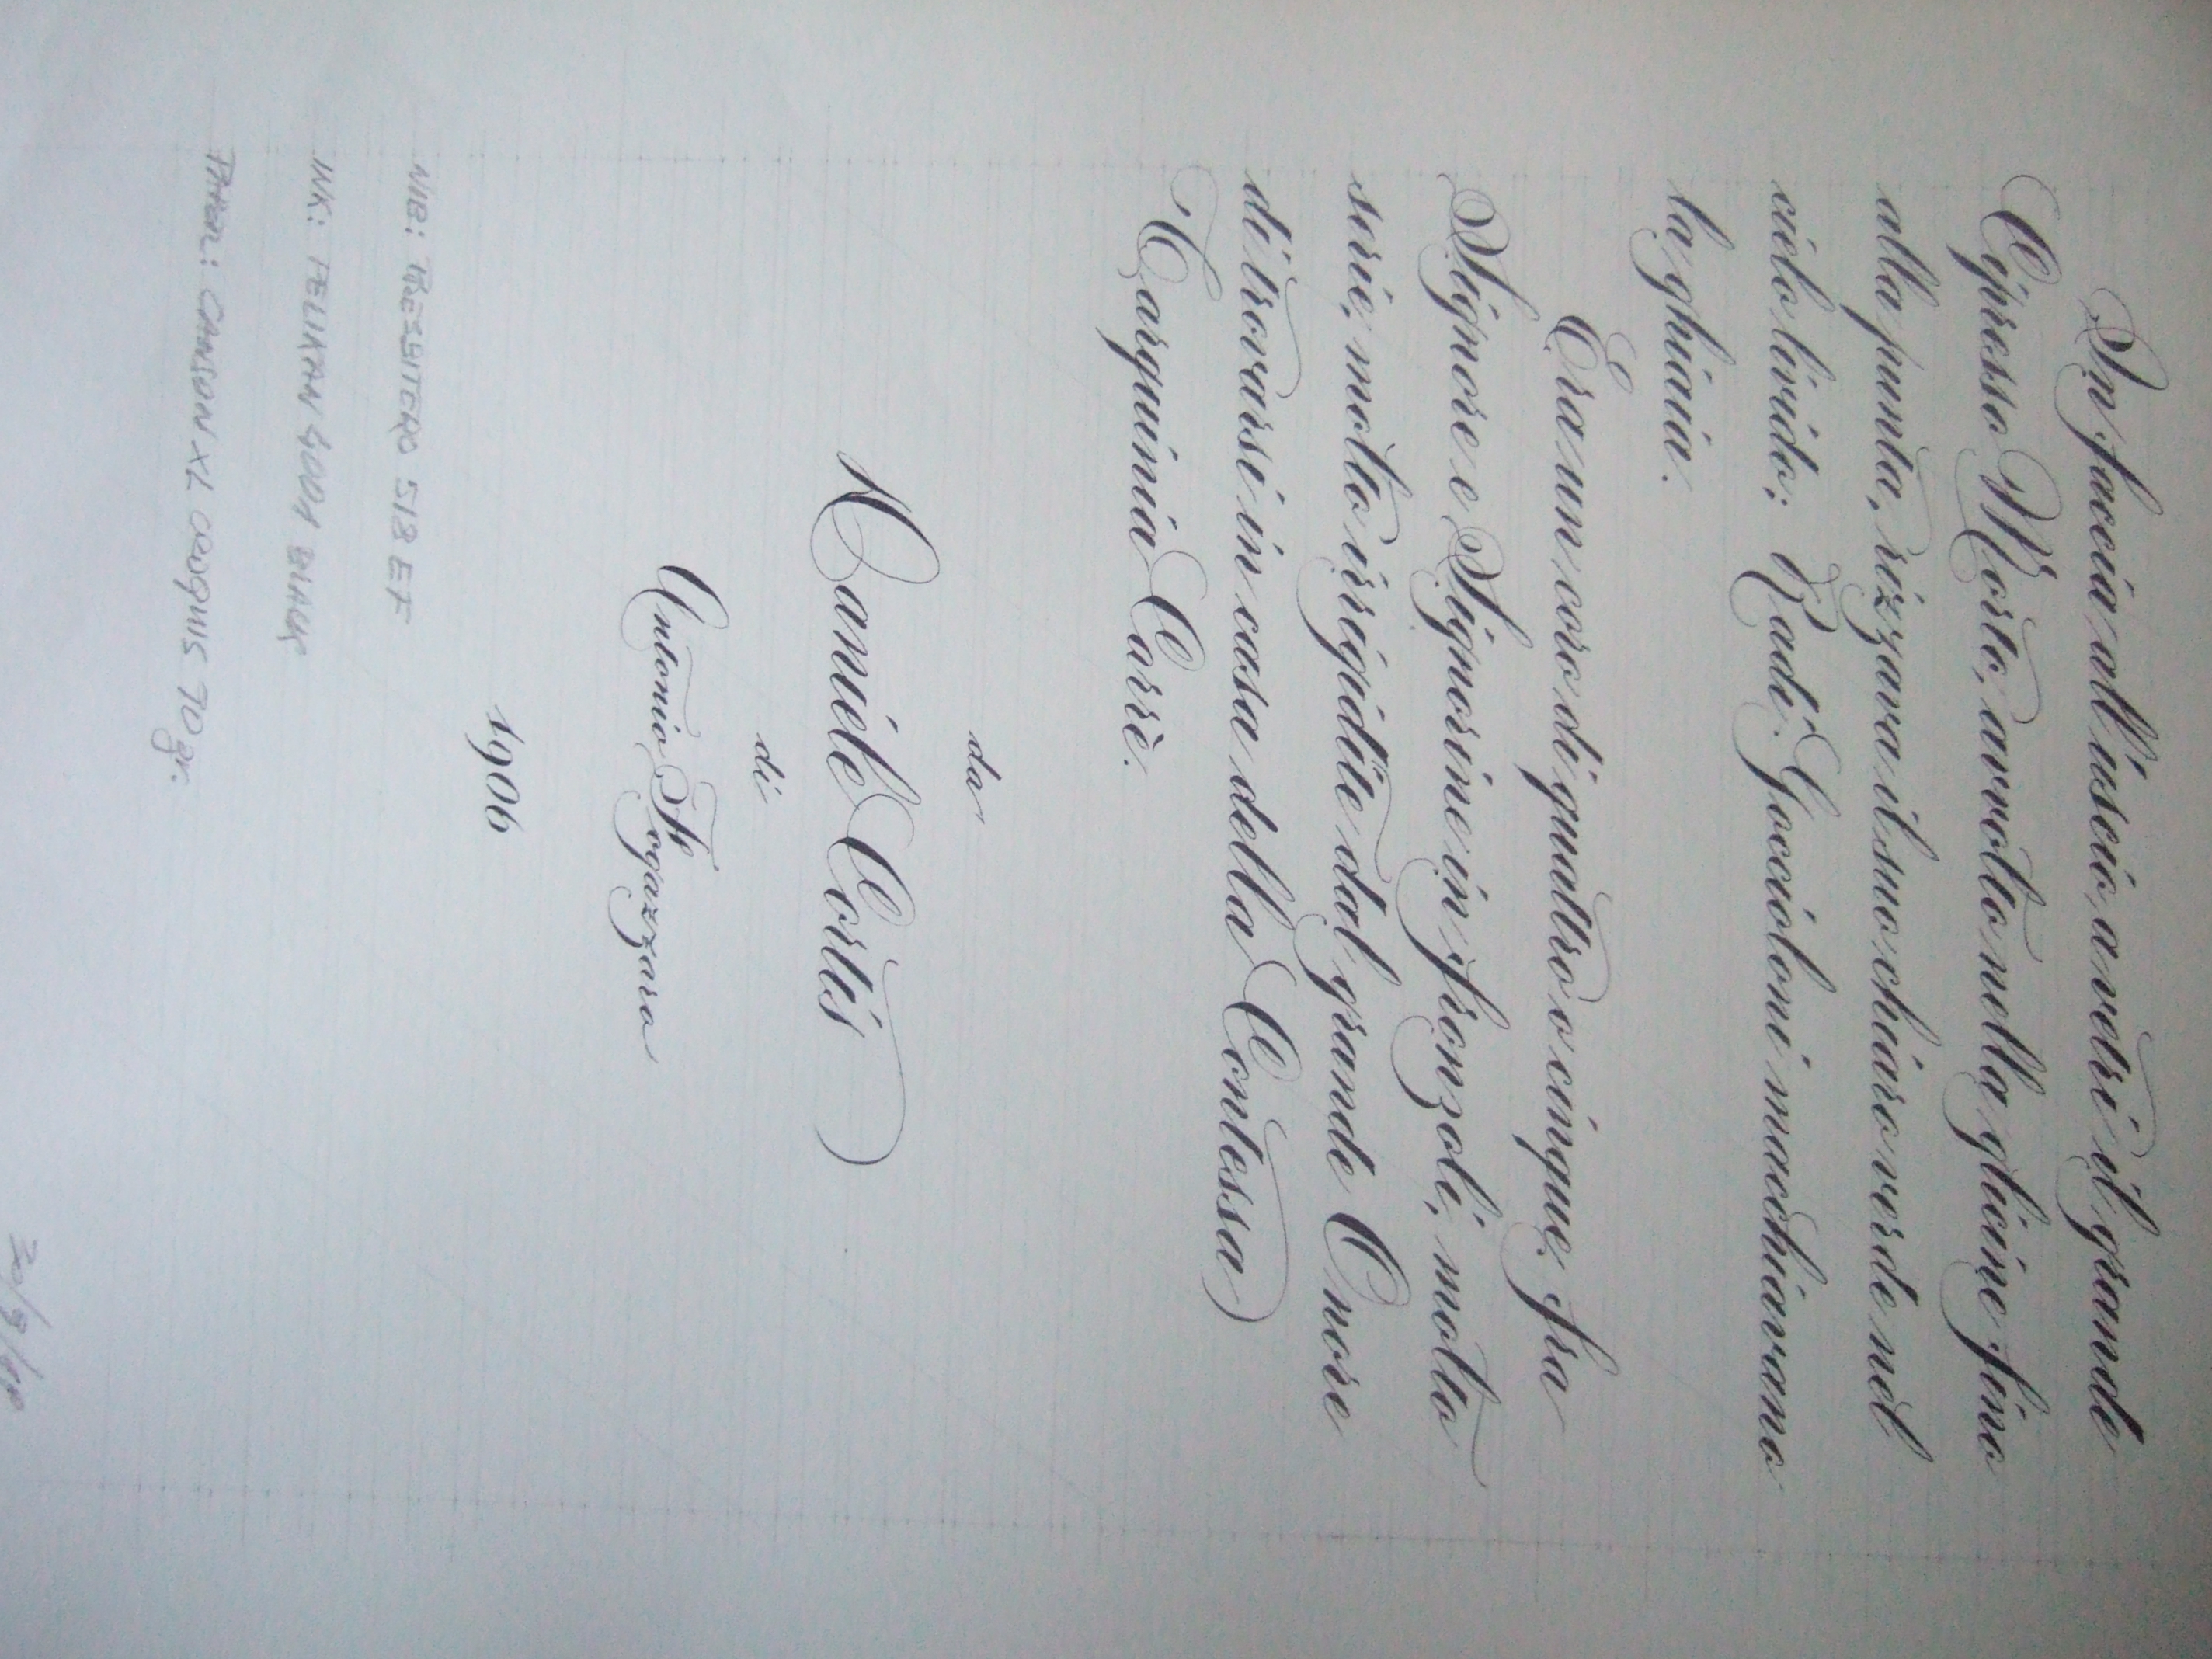 In faccia all'uscio a vetri il grande
Cipresso Morto, avvolto nella glicine fino
alla punta, rizzava il suo chiaro verde nel
cielo livido; Radi Goccioloni macchiavano
la ghiaia.
Era un coro di quattro o cinque fra
Signore e Signorine in fronzoli, molto
serie, molto irrigidite dal grande Onore
di trovarsi in casa della Contessa
Tarquinia Carrè.
da
Daniele Cortis
di
Antonio Fogazzaro
1906
NIB: BRESSITERO 518 EF
INK: PELIKAN 4001 BLACK
PAPER: CANSON XL CROQUIS 70 gr.